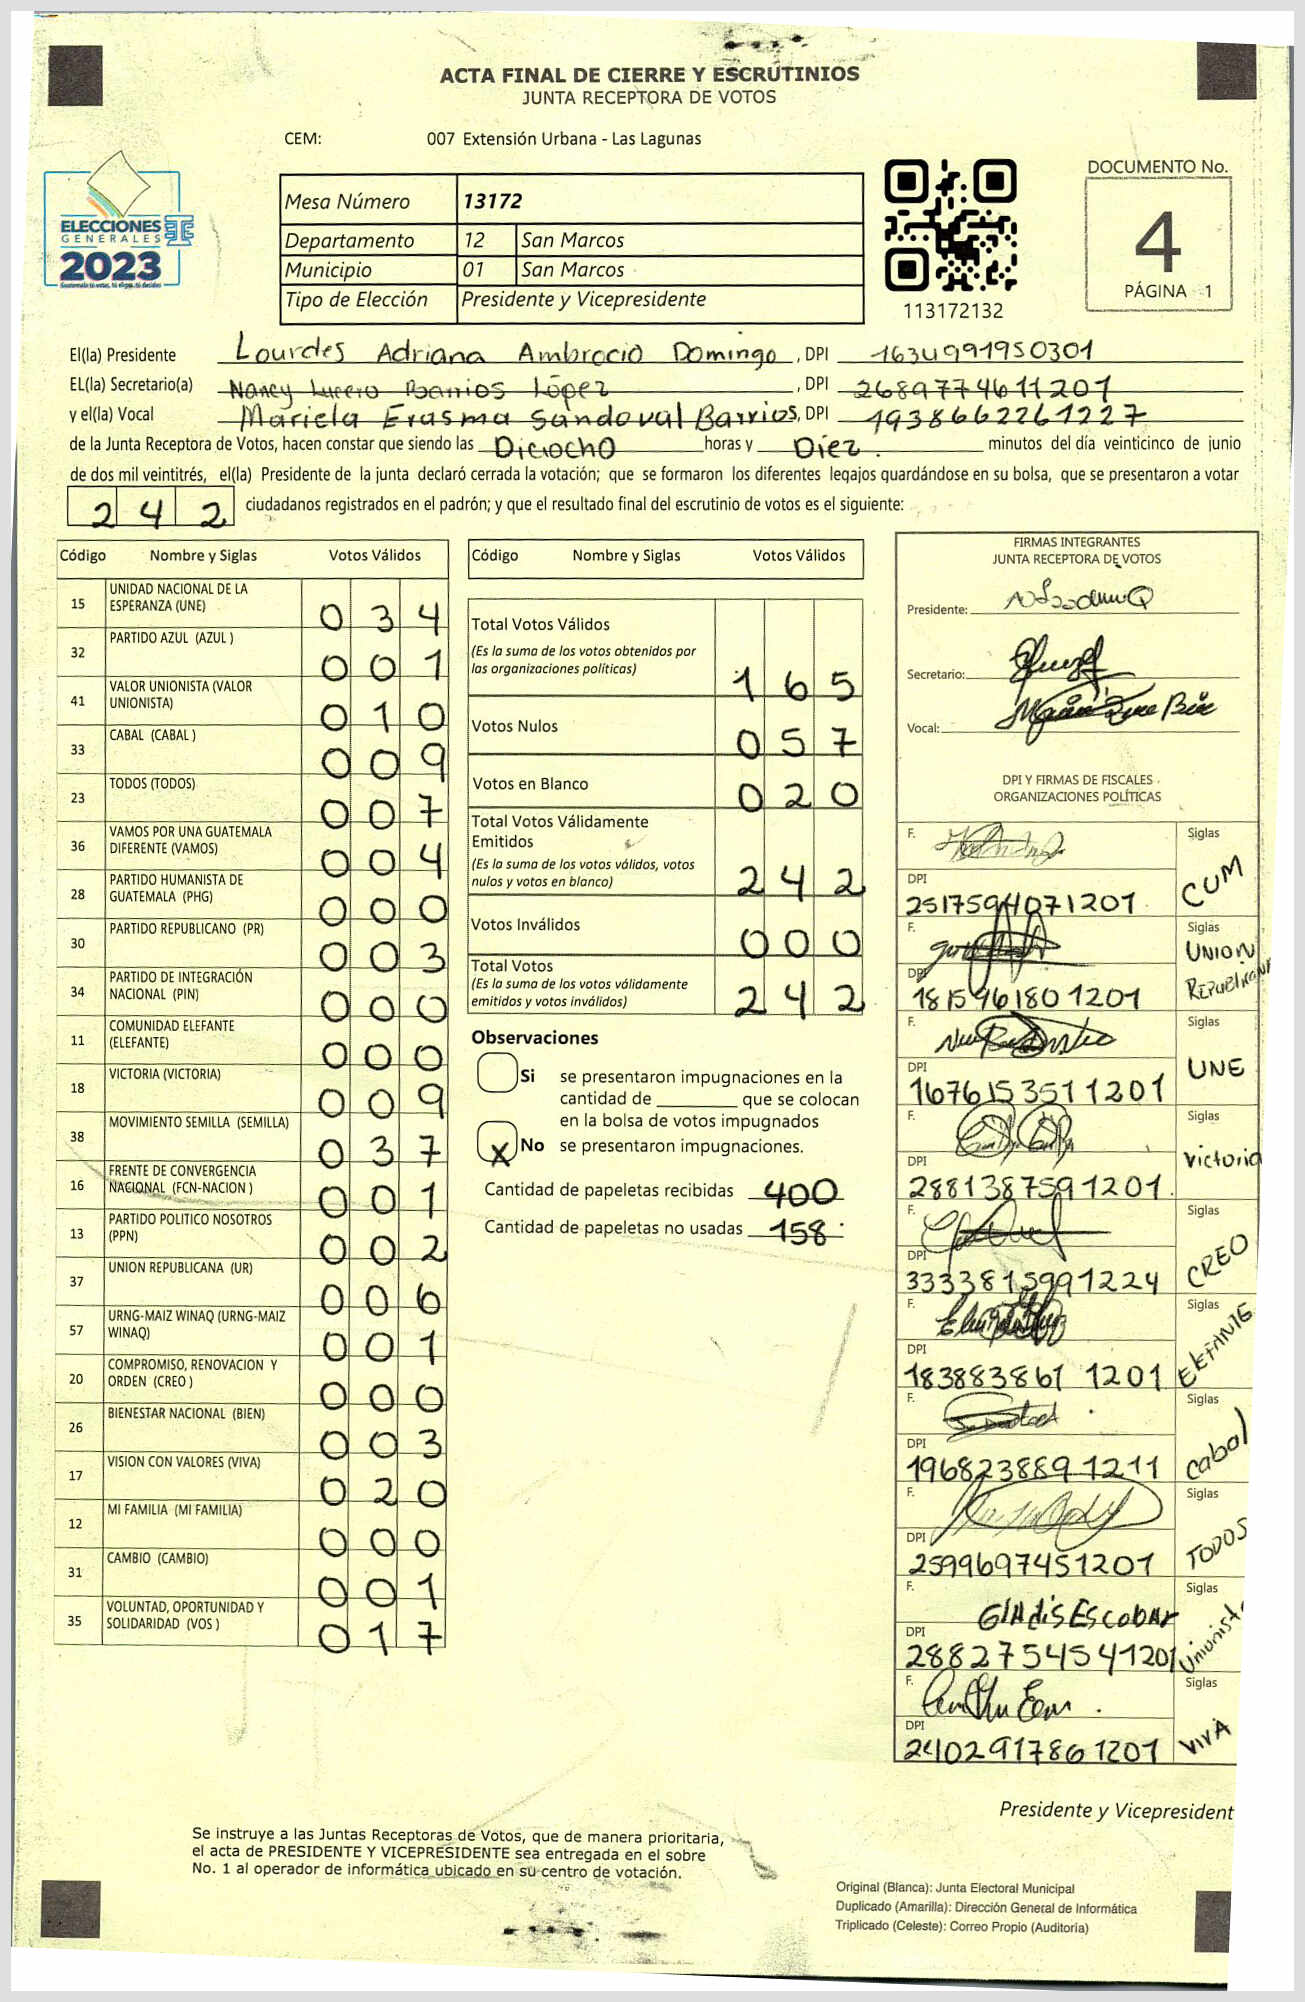 ACTA FINAL DE CIERRE Y ESCRUTINIOS
JUNTA RECEPTORA DE VOTOS
CEM: 007 Extensión Urbana - Las Lagunas
ELECCIONES
GENERALES
2023
Mesa Número 13172
Departamento 12 San Marcos
Municipio 01 San Marcos
Tipo de Elección Presidente y Vicepresidente
113172132
DOCUMENTO No.
4
PÁGINA 1
El(la) Presidente Lourdes Adriana Ambrocio Domingo, DPI 1634991950301
EL(la) Secretario(a) Nancy Lucero Barrios López, DPI 2689774611201
y el(la) Vocal Mariela Erasma Sandoval Barrios, DPI 1938662261227
de la Junta Receptora de Votos, hacen constar que siendo las Diciocho horas y Diez. minutos del día veinticinco de junio
de dos mil veintitrés, el(la) Presidente de la junta declaró cerrada la votación; que se formaron los diferentes legajos guardándose en su bolsa, que se presentaron a votar
242 ciudadanos registrados en el padrón; y que el resultado final del escrutinio de votos es el siguiente:
Código Nombre y Siglas Votos Válidos
15 UNIDAD NACIONAL DE LA ESPERANZA (UNE) 034
32 PARTIDO AZUL (AZUL ) 001
41 VALOR UNIONISTA (VALOR UNIONISTA) 010
33 CABAL (CABAL ) 009
23 TODOS (TODOS) 007
36 VAMOS POR UNA GUATEMALA DIFERENTE (VAMOS) 004
28 PARTIDO HUMANISTA DE GUATEMALA (PHG) 000
30 PARTIDO REPUBLICANO (PR) 003
34 PARTIDO DE INTEGRACIÓN NACIONAL (PIN) 000
11 COMUNIDAD ELEFANTE (ELEFANTE) 000
18 VICTORIA (VICTORIA) 009
38 MOVIMIENTO SEMILLA (SEMILLA) 037
16 FRENTE DE CONVERGENCIA NACIONAL (FCN-NACION ) 001
13 PARTIDO POLITICO NOSOTROS (PPN) 002
37 UNION REPUBLICANA (UR) 006
57 URNG-MAIZ WINAQ (URNG-MAIZ WINAQ) 001
20 COMPROMISO, RENOVACION Y ORDEN (CREO ) 000
26 BIENESTAR NACIONAL (BIEN) 003
17 VISION CON VALORES (VIVA) 020
12 MI FAMILIA (MI FAMILIA) 000
31 CAMBIO (CAMBIO) 001
35 VOLUNTAD, OPORTUNIDAD Y SOLIDARIDAD (VOS ) 017
Código Nombre y Siglas Votos Válidos
Total Votos Válidos
(Es la suma de los votos obtenidos por
las organizaciones políticas) 165
Votos Nulos 057
Votos en Blanco 020
Total Votos Válidamente
Emitidos
(Es la suma de los votos válidos, votos
nulos y votos en blanco) 242
Votos Inválidos 000
Total Votos
(Es la suma de los votos válidamente
emitidos y votos inválidos) 242
Observaciones
Si se presentaron impugnaciones en la
cantidad de ________ que se colocan
en la bolsa de votos impugnados
X No se presentaron impugnaciones.
Cantidad de papeletas recibidas 400
Cantidad de papeletas no usadas 158
FIRMAS INTEGRANTES
JUNTA RECEPTORA DE VOTOS
Presidente:
Secretario:
Vocal:
DPI Y FIRMAS DE FISCALES
ORGANIZACIONES POLÍTICAS
F. Siglas CUM
DPI 2517594071201
F. Siglas UNION REPUBLICANA
DPI 1815961801201
F. Siglas UNE
DPI 1676153511201
F. Siglas Victoria
DPI 2881387591201
F. Siglas CREO
DPI 3333815991224
F. Siglas ElEfANTE
DPI 183883861 1201
F. Siglas Cabal
DPI 1968238891211
F. Siglas TODOS
DPI 2599697451201
F. GlAdis EscobAr Siglas Unionista
DPI 2882754541201
F. Siglas VIVA
DPI 2402917861201
Presidente y Vicepresident
Se instruye a las Juntas Receptoras de Votos, que de manera prioritaria,
el acta de PRESIDENTE Y VICEPRESIDENTE sea entregada en el sobre
No. 1 al operador de informática ubicado en su centro de votación.
Original (Blanca): Junta Electoral Municipal
Duplicado (Amarilla): Dirección General de Informática
Triplicado (Celeste): Correo Propio (Auditoría)